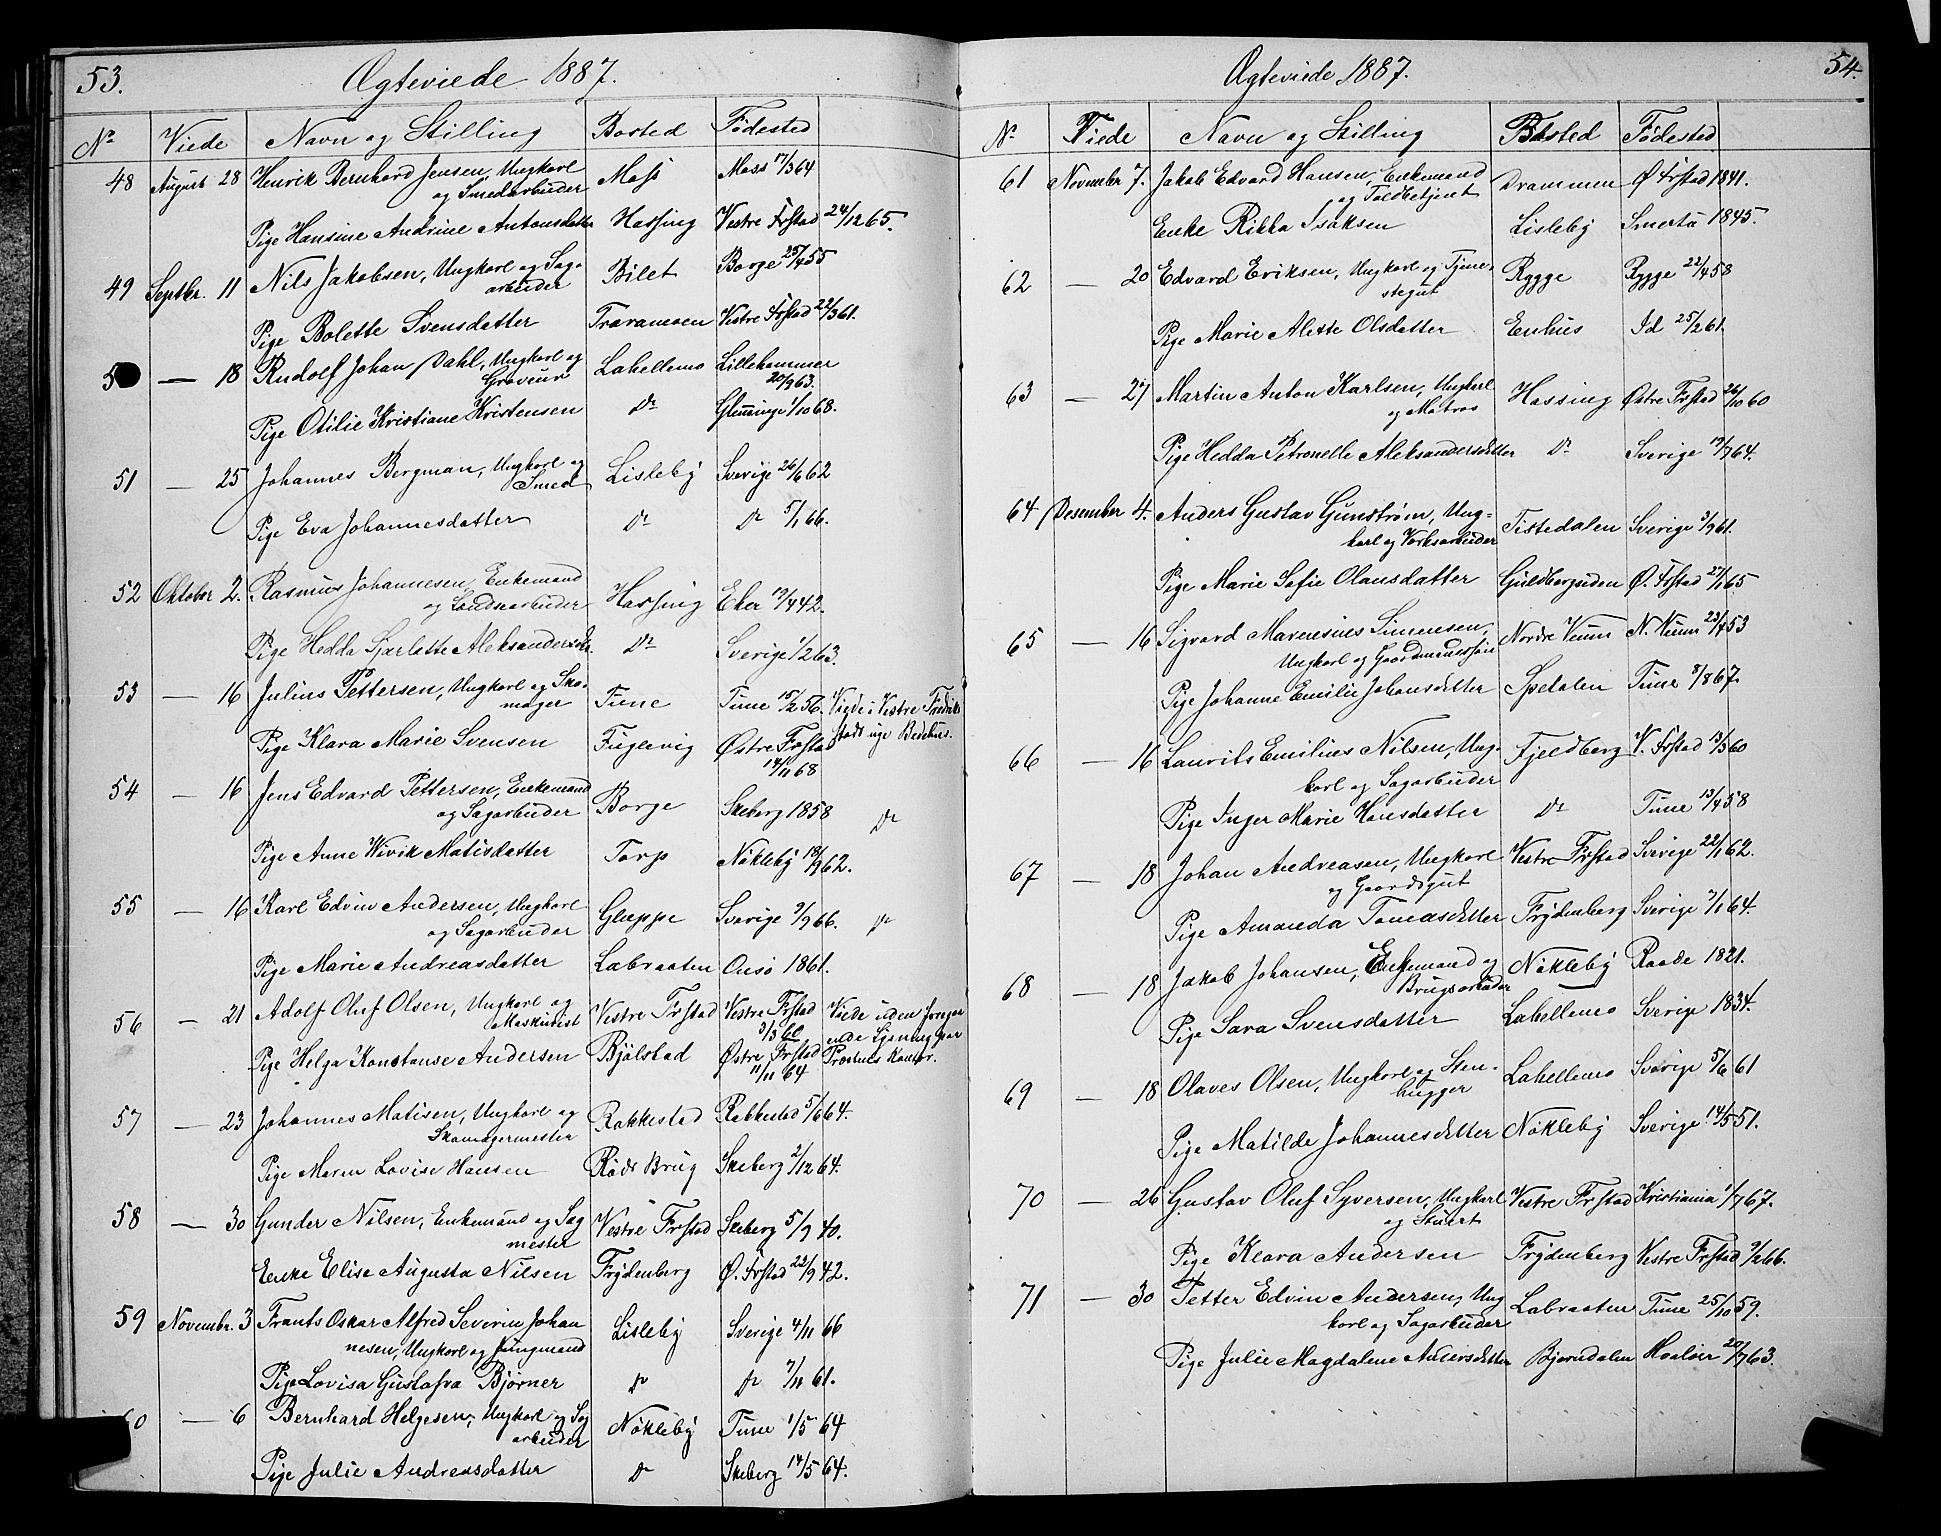 53. Ægteviede 1887.
No Viede Navn og Stilling Bosted Fødested
48 August 28 Henrik Bernhard Jensen, Ungkarl Moss Moss 17/3 64
og Smedarbeider
Pige Hansine Andrine Antonsdatter Hassing Vestre Frstad 24/12 65.
49 Septbr. 11 Nils Jakobsen, Ungkarl og Sag- Bilet Borge 25/4 55
arbeider
Pige Bolette Svensdatter Traramoen Vestre Frstad 22/3 61.
5 — 18 Rudolf Johan Dahl, Ungkarl og Labellemo Lillehammer
Graveur 20/9 63.
Pige Otilie Kristiane Kristensen Do Glemminge 1/10 68.
51 — 25 Johannes Bergman, Ungkarl og Lisleby Sverige 26/6 62
Smed
Pige Eva Johannesdatter Do Do 5/1 66.
52 Oktober 2. Rasmus Johannesen, Enkemand Hassing Eker 19/4 42.
og Landarbeider
Pige Hedda Sjarlotte Aleksandersdr. Do Sverige 1/2 63.
53 — 16 Julius Pettersen, Ungkarl og Sko- Tune Tune 15/2 56. Viede i Vestre Fredrik-
mager stads nye Bedehus.
Pige Klara Marie Svensen Fuglevig Østre Frstad
14/11 68
54 — 16 Jens Edvard Pettersen, Enkemand Borge Skeberg 1858 Do
og Sagarbeider
Pige Anne Wivik Matisdatter Torp Nökleby 18/9 62.
55 — 16 Karl Edvin Andersen, Ungkarl Gleppe Sverige 9/9 66. Do
og Sagarbeider
Pige Marie Andreasdatter Labraaten Onsö 1861.
56 — 21 Adolf Oluf Olsen, Ungkarl og Vestre Frstad Vestre Frstad Viede uden foregaa
Maskinist 3/3 60 ende Lysning paa
Pige Helga Konstanse Andersen Bjölstad Østre Frstad Prostens Kontor.
11/11 64
57 — 23 Johannes Matisen, Ungkarl og Rakkestad Rakkestad 5/6 64.
Skomagermester
Pige Maren Lovise Hansen Röds Brug Skeberg 2/12 64.
58 — 30 Gunder Nilsen, Enkemand og Sag Vestre Frstad Skeberg 5/9 40.
mester
Enke Elise Augusta Nilsen Frydenberg Ø. Frstad 22/9 42.
59 Novembr. 3 Frants Oskar Alfred Severin Johan Lisleby Sverige 4/11 66
nesen, Ungkarl og Jungmand
Pige Lovisa Gustafva Bjørner Do Do 7/11 61.
60 — 6 Bernhard Helgesen, Ungkarl og Sag Nökleby Tune 1/5 64
arbeider
Pige Julie Andreasdatter Do Skeberg 14/5 64.
Ægteviede 1887. 54.
No Viede Navn og Stilling Bosted Fødested
61 November 7. Jakob Edvard Hansen, Enkemand Drammen Ø Frstad 1841.
og Toldbetjent
Enke Rikka Isaksen Lisleby Smertu 1845.
62 — 20 Edvard Eriksen, Ungkarl og Tjene- Rygge Rygge 22/4 58
stegut
Pige Marie Alette Olsdatter Enhus Id 25/2 61.
63 — 27 Martin Anton Karlsen, Ungkarl Hassing Østre Frstad 26/10 60
og Matros
Pige Hedda Petronelle Aleksandersdtter Do Sverige 19/7 64.
64 Desember 4. Anders Gustav Gunstrøm, Ung- Tistedalen Sverige 3/9 61.
karl og Verksarbeider
Pige Marie Sofie Olausdatter Guldbergsiden Ø. Frstad 27/1 65
65 — 16 Sigvard Marenius Simensen, Nordre Veum N. Veum 23/4 53
Ungkarl og Gaardmandssøn
Pige Johanne Emilie Johansdtter Spetalen Tune 8/8 67.
66 — 16 Laurits Emilius Nilsen, Ung- Fjeldberg V. Frstad 13/3 60
karl og Sagarbeider
Pige Inger Marie Hansdatter Do Tune 13/4 58
67 — 18 Johan Andreasen, Ungkarl Vestre Frstad Sverige 22/1 62.
og Gaardsgut
Pige Amanda Tomasdtter Frydenberg Sverige 7/1 64.
68 — 18 Jakob Johansen, Enkemand og Nökleby Raade 1821.
Brugsarbeider
Pige Sara Svensdatter Labellemo Sverige 1834.
69 — 18 Olaves Olsen, Ungkarl og Sten- Labellemo Sverige 5/6 61
hugger
Pige Matilde Johannesdtter Nökleby Sverige 14/5 51.
70 — 26 Gustav Oluf Syversen, Ungkarl Vestre Frstad Kristiania 1/7 67.
og Stuert
Pige Klara Andersen Frydenberg Vestre Frstad 9/2 66.
71 — 30 Petter Edvin Andersen, Ung Labraaten Tune 25/10 59.
karl og Sagarbeider
Pige Julie Magdalene Andersdtter Bjørndalen Hvaløer 20/7 63.